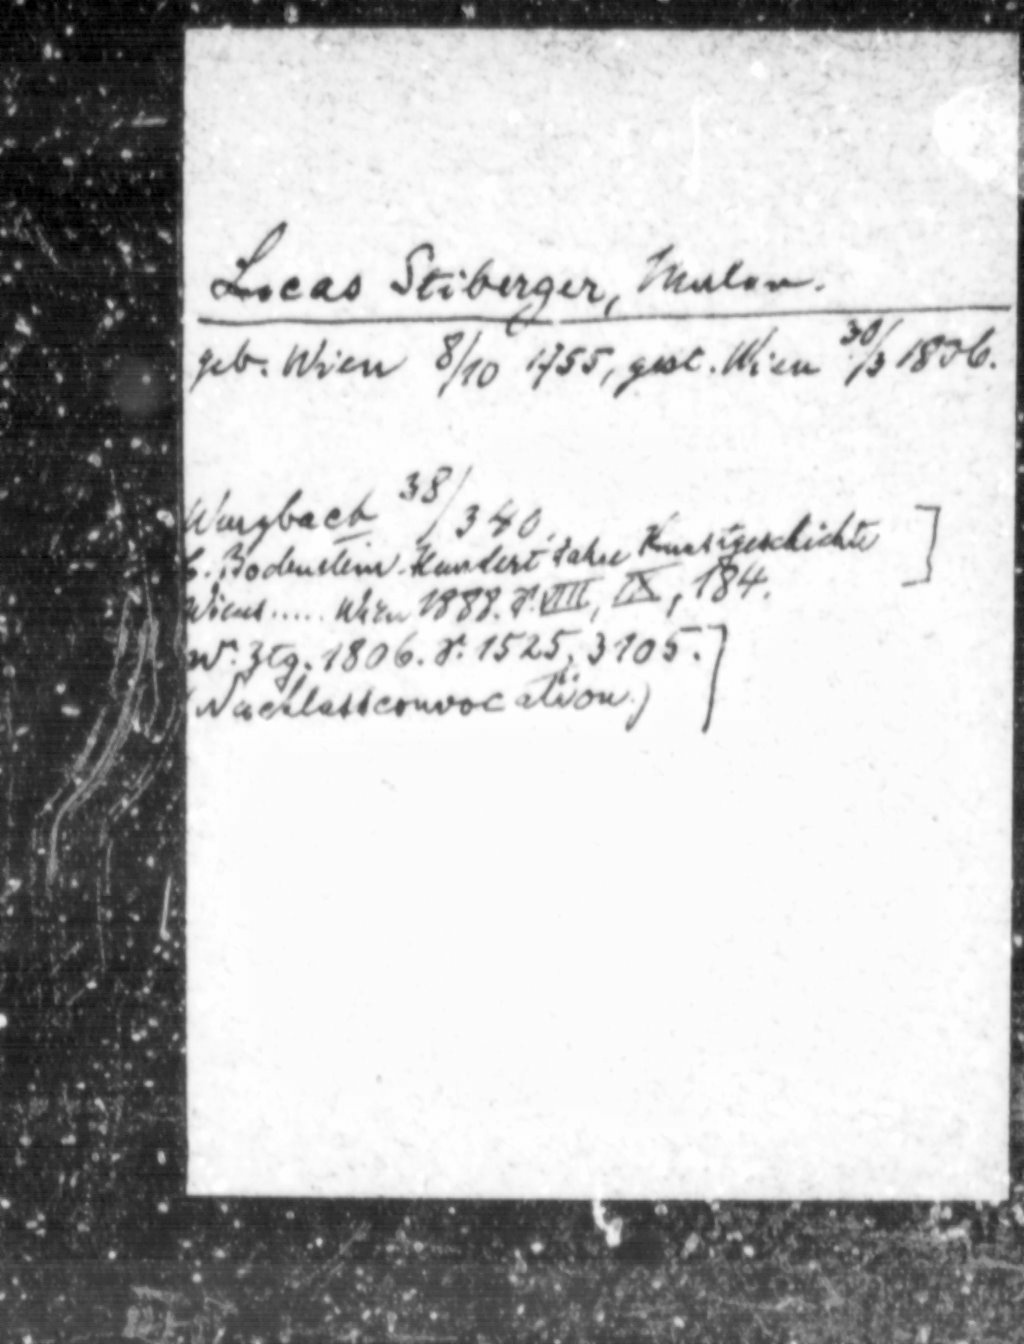 Lucas Stiberger, Maler.
geb. Wien 8/10 1755, gest. Wien 30/3 1806.
Wurzbach 38/340.
C. Bodenstein. Hundert Jahre Kunstgeschichte
Wiens..... Wien 1888. S. VIII, IX, 184.
W. Ztg. 1806. S. 1525, 3105.
(Nachlassconvocation)